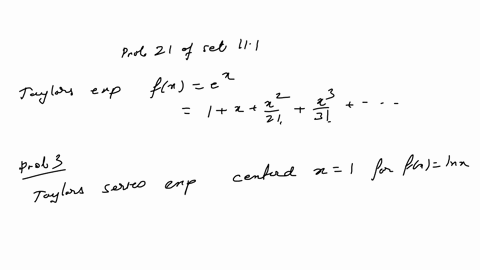 Prob 21 of set 11.1
Taylors exp f(x) = e^x
= 1 + x + x^2/2! + x^3/3! + - - -
Prob 3
Taylors series exp centerd x = 1 for f(x) = ln x